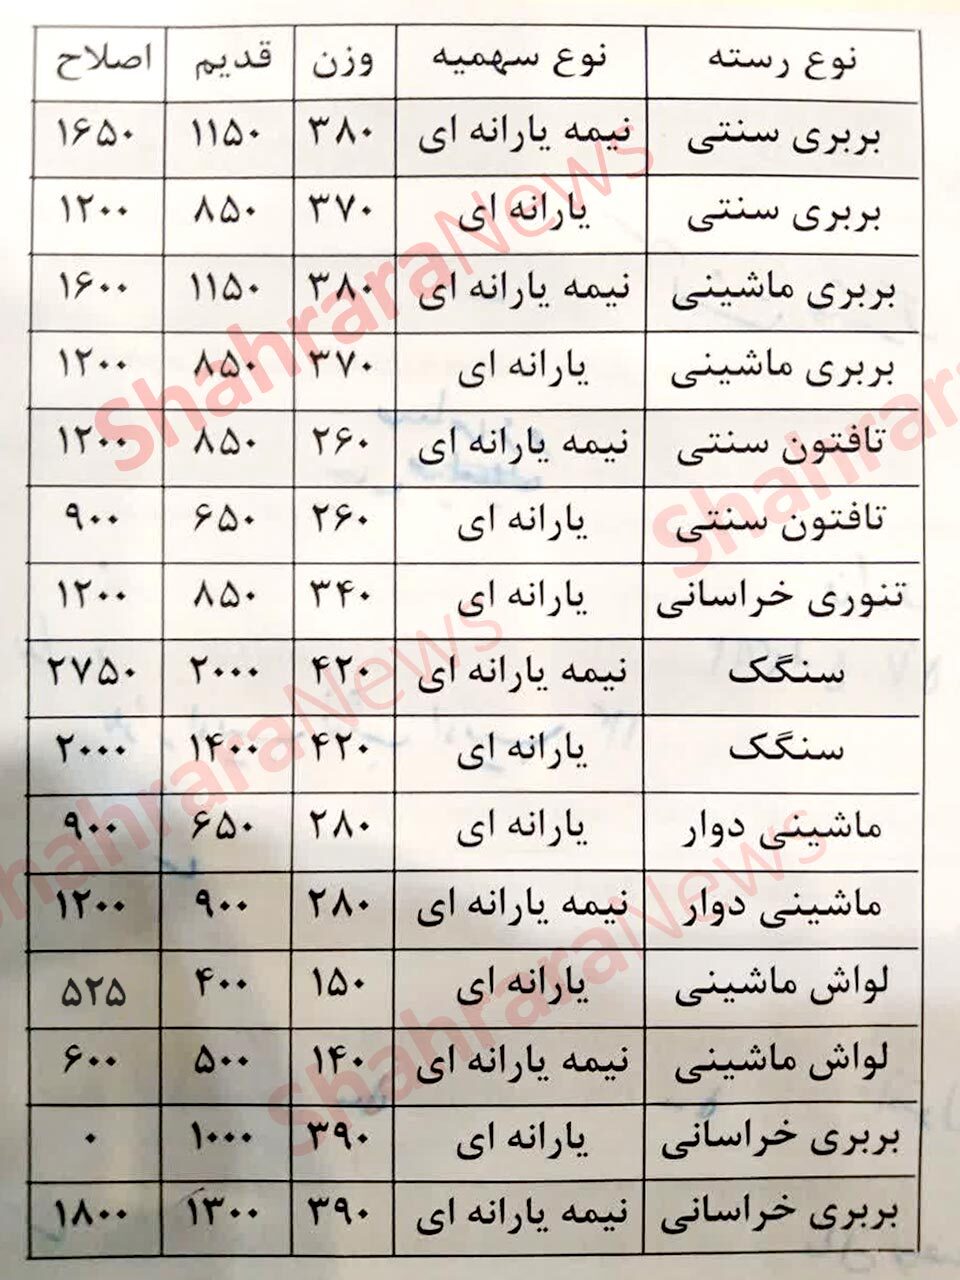 نوع رسته نوع سهمیه وزن قدیم اصلاح
بربری سنتی نیمه یارانه ای ۳۸۰ ۱۱۵۰ ۱۶۵۰
بربری سنتی یارانه ای ۳۷۰ ۸۵۰ ۱۲۰۰
بربری ماشینی نیمه یارانه ای ۳۸۰ ۱۱۵۰ ۱۶۰۰
بربری ماشینی یارانه ای ۳۷۰ ۸۵۰ ۱۲۰۰
تافتون سنتی نیمه یارانه ای ۲۶۰ ۸۵۰ ۱۲۰۰
تافتون سنتی یارانه ای ۲۶۰ ۶۵۰ ۹۰۰
تنوری خراسانی یارانه ای ۳۴۰ ۸۵۰ ۱۲۰۰
سنگک نیمه یارانه ای ۴۲۰ ۲۰۰۰ ۲۷۵۰
سنگک یارانه ای ۴۲۰ ۱۴۰۰ ۲۰۰۰
ماشینی دوار یارانه ای ۲۸۰ ۶۵۰ ۹۰۰
ماشینی دوار نیمه یارانه ای ۲۸۰ ۹۰۰ ۱۲۰۰
لواش ماشینی یارانه ای ۱۵۰ ۴۰۰ ۵۲۵
لواش ماشینی نیمه یارانه ای ۱۴۰ ۵۰۰ ۶۰۰
بربری خراسانی یارانه ای ۳۹۰ ۱۰۰۰ ۰
بربری خراسانی نیمه یارانه ای ۳۹۰ ۱۳۰۰ ۱۸۰۰
ShahraraNews
ShahraraNews
ShahraraNews